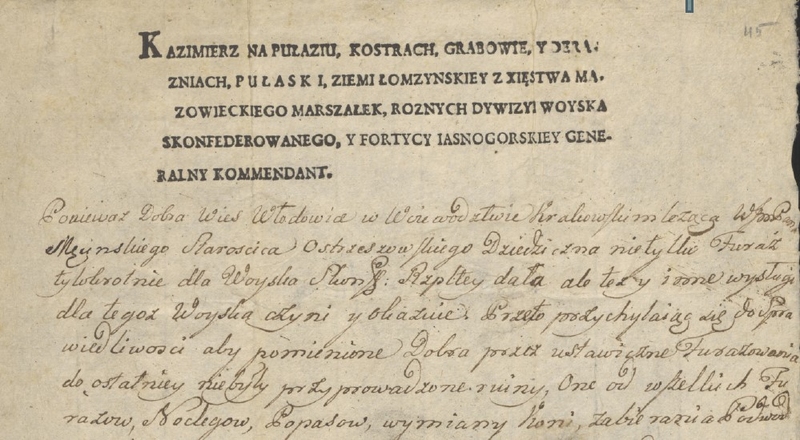 45
KAZIMIERZ NA PUŁAZIU, KOSTRACH, GRABOWIE, Y DERAŻ
ZNIACH, PUŁASKI, ZIEMI ŁOMZYNSKIEY Z XIĘSTWA MA-
ZOWIECKIEGO MARSZAŁEK, ROZNYCH DYWIZYI WOYSKA
SKONFEDEROWANEGO, Y FORTYCY IASNOGORSKIEY GENE-
RALNY KOMMENDANT.
Poniewaz Dobra Wies Włodowice w Woiewodztwie Krakowskim leząca Wgo Pana
Męcinskiego Starościca Ostrzeszowskiego Dziedziczna nietylko Furaż
tylokrotnie dla Woyska Skonf: Rzpltey dała ale tez y inne wysługi
dla tegoz Woyska czyni y okazuie. Przeto przychylaiąc się do Spra
wiedliwosci aby pomienione Dobra przez ustawiczne Furazowania
do ostatniey niebyły przyprowadzone ruiny, One od wszelkich Fu
razow, Noclegow, Popasow, wymiany Koni, zabierania Podwod